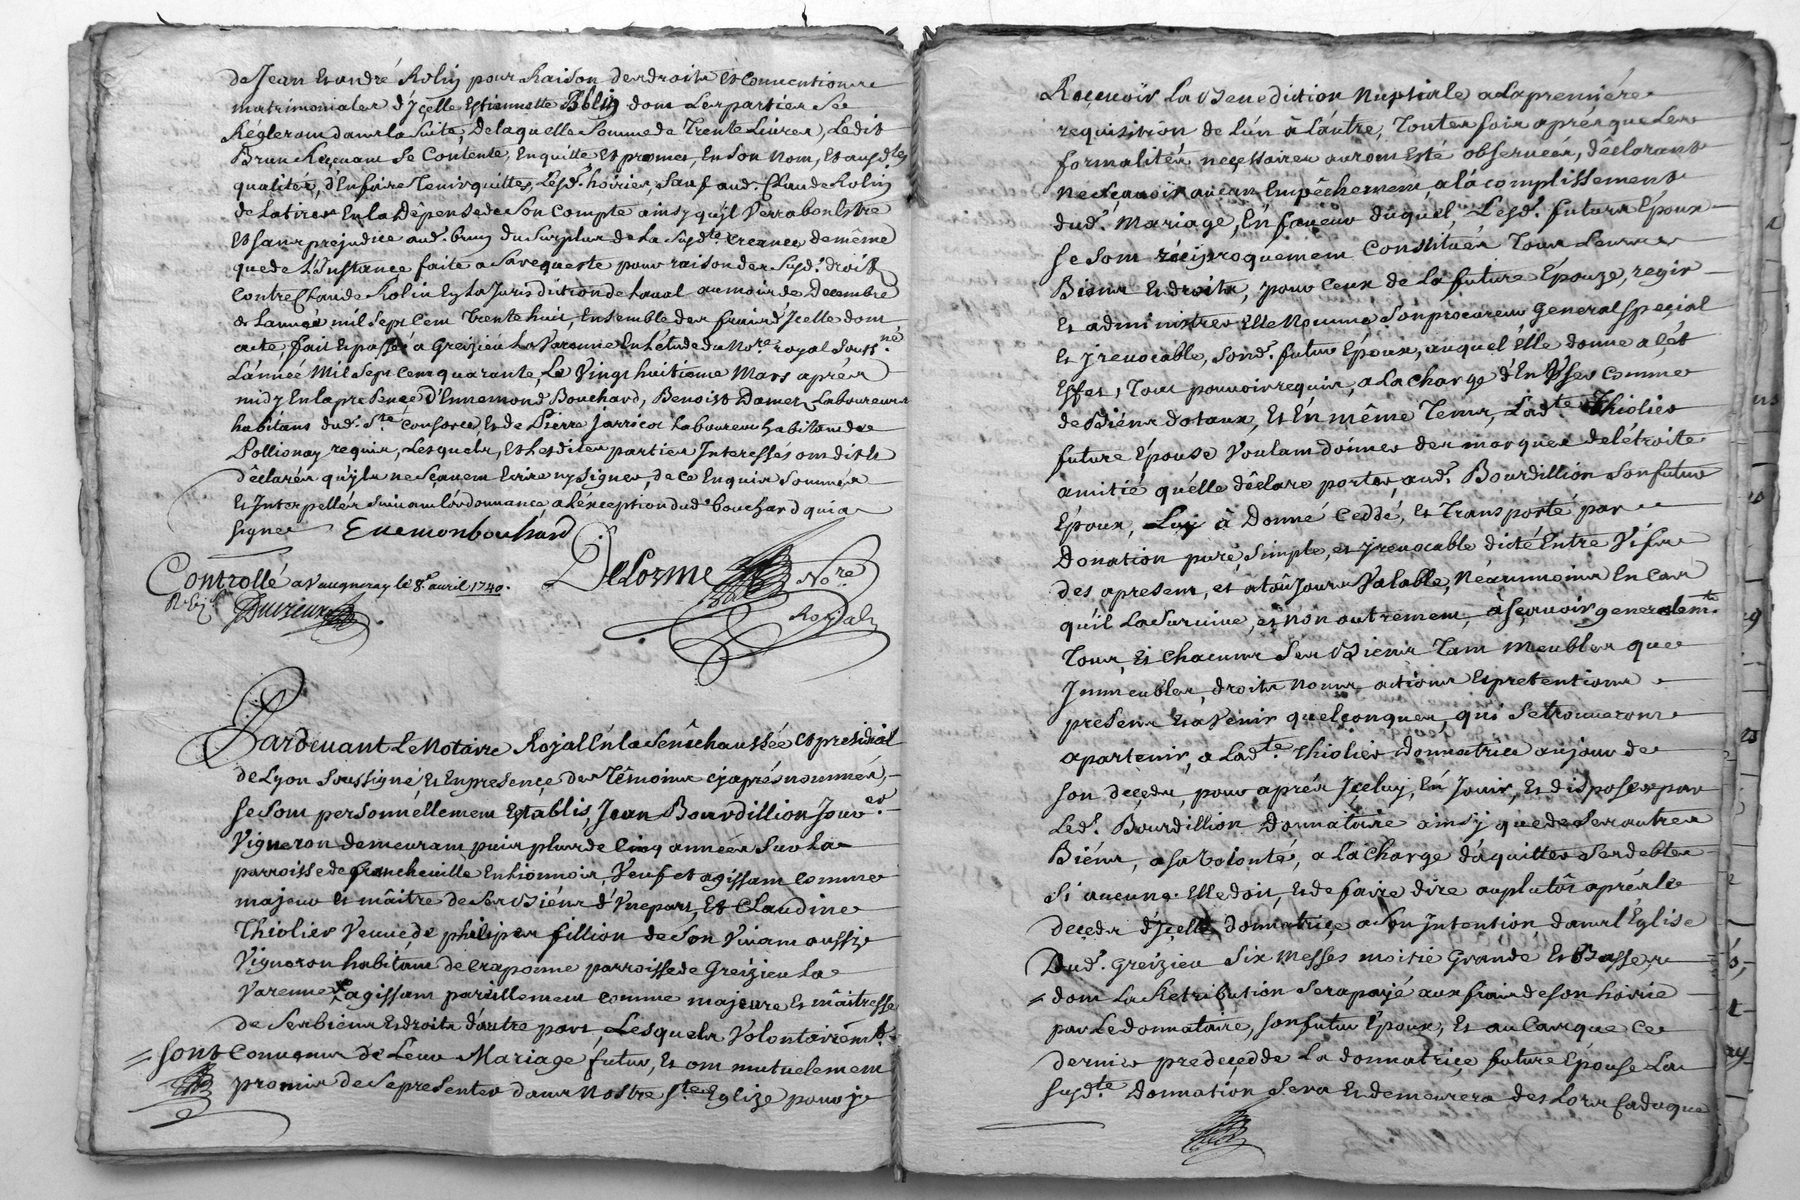 de Jean et andré Rolin pour Raison des droits et Conventions
matrimoniales d'Ycelle Estiennette Rolin dont Les parties se
Régleront dans la suite, De laquelle somme de Trente Livres, Ledit
Brun Reçevant se Contente, En quitte et promet, En son nom, Et ausd.tes
qualités, d'En faire Tenir quittes, Lesd. hoiries, sauf aud. Claude Rolin
de Latirer En la Dépense de son Compte ainsy qu'il verra bon Estre
Et sans prejudice aud. brun du surplus de La susd.te Creance de même
que de L'Instance faite a sa requeste pour raison des susd. droits
Contre Claude Rolin En La Jurisdiction de Laval au mois de Decembre
de Lannée mil sept cent Trente huit, Ensemble des frais d'Jcelle dont
acte, fait et passé a Greizieu La Varenne En L'étude du No.re royal souss.né
L'année Mil Sept cent quarante, Le Vingt huitieme Mars après
midy En la presence d'Ennemond Bouchard, Benoist Damez Laboureurs
habitans dud. S.te Consorce, Et de Pierre Jarricot Laboureur habitant de
Pollionay requis, Lesquels, Et Lesdites parties Interessés ont dit et
déclarés qu'ils ne sçavent Ecrire ny signer, de ce Enquis sommés
Et Interpellés suivant L'ordonnance a L'exception dud. bouchard qui a
signé Enemonbouchard
Controllé a Vaugneray le 8.e avril 1740.
Delorme No.re
Royal
Pardevant Le Notaire Royal En la senêchaussée Et presidial
de Lyon soussigné, Et En presençe des Têmoins cy aprés nommés,
se sont personnellement Establis, Jean Bourdillion Jour.er
Vigneron demeurant puis plus de Cinq années sur La
parroisse de francheville En Lionnois, Veuf et agissant comme
majeur et mâitre de ses Biéns d'Vne part, Et Claudine
Thiolier Veuve de philipes fillion de son Vivant aussi
Vigneron habitant de Craponne parroisse de Greizieu La
Varenne agissant pareillement comme majeure Et mâitresse
de ses biens Et droits d'autre part, Lesquels Volontairem.t
= sont Convenus de Leur Mariage futur, Et ont mutuelement
promis de se presenter dans Nostre S.te Eglize pour y
Reçevoir La Benediction Nuptiale a La premiére
requisition de L'un â L'autre, Toutes fois aprés que Les
formalités neçessaires auront Esté observées, déclarant
ne sçavoir aucun Empêchement a L'acomplissement
dud. Mariage, En faveur duquel, Lesd. futurs Epoux
se sont réciproquement Constitués Tous Leurs
Biens Et droits, pour Ceux de La future Epouze, regir
Et administrer Elle Nomme son procureur General special
Et jrevocable, sond. futur Epoux, auquel élle donne a çét
Effet, Tout pouvoir requis, a La Charge d'En Vser Comme
de Biéns dotaux, Et Én même Tems, Lad.te Thiolier
future Epouse Voulant donner des marques de L'étroite
amitié qu'elle déclare porter, aud. Bourdillion son futur
Epoux, Luy â Donné Ceddé, Et Transporté par
Donation pure, simple, et jrevocable dicté Entre Vifs
des apresent, et a toûjours Valable, Néanmoins En Cas
qu'il La survive, et non autrement, âsçavoir generalem.t
Tous, Et chacuns ses Biens Tant Meubles que
Jmmeubles, droits noms actions Et pretentions
presens Et a Venir quelçonques, qui se trouveront
apartenir, a Lad.te Thiolier donnatrice au jour de
son deçeds, pour aprés Jçeluy, Én Jouir, Et disposer par
Led. Bourdillion donnataire ainsy que de ses autres
Biéns, a sa Volonté, a La Charge d'aquitter ses debtes
si aucune Elle doit, Et de faire dire au plutôt aprés Le
deçeds d'Jçelle donnatriçe a son Jntention dans L'Eglise
Dud. Greizieu six Messes moitié Grande Et Basses
= dont La Rétribution sera payé aux frais de son hoirie
par Le donnataire, son futur Epoux, Et au Cas que Ce
dernier predeçedde La donnatriçe future Epouse La
susd.te Donnation sera Et demeurera des Lors Caduque